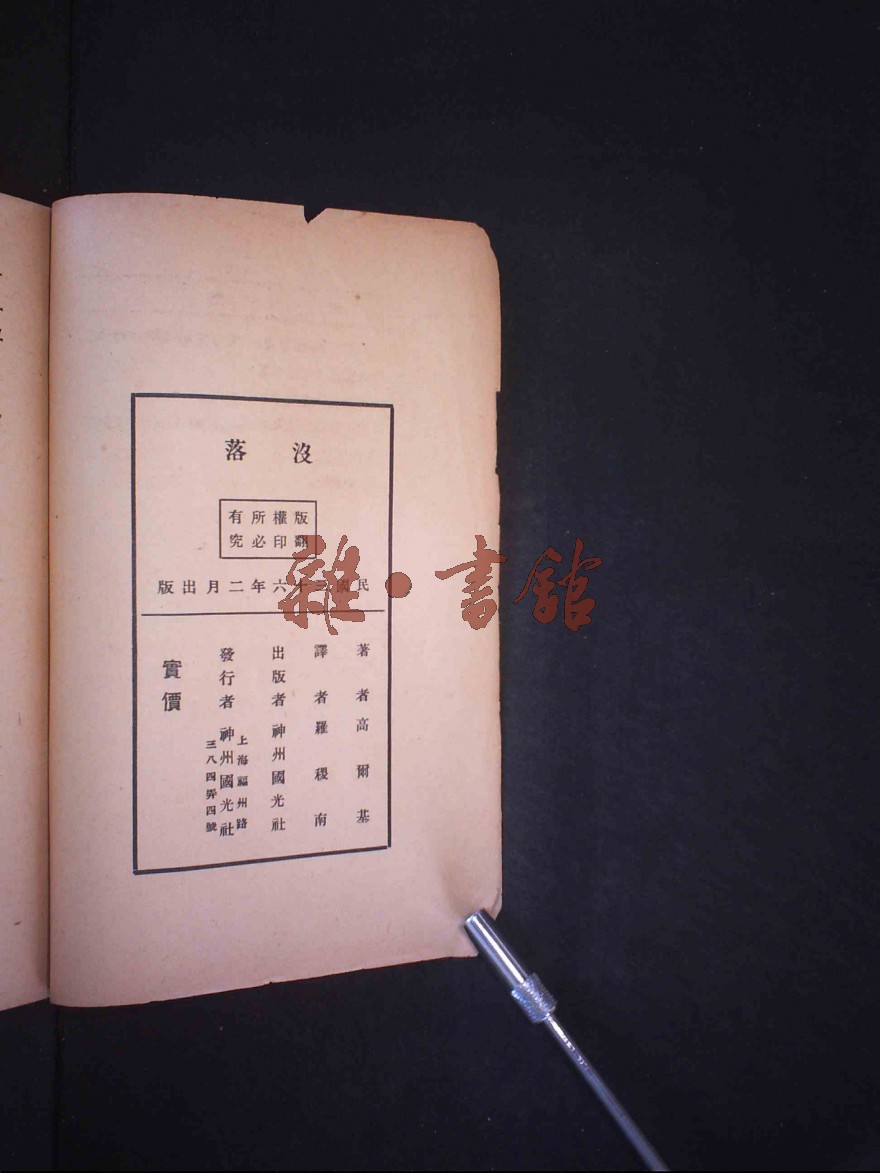 沒落
版權所有
翻印必究
民國三十六年二月出版
著者高爾基
譯者羅稷南
出版者神州國光社
發行者神州國光社
上海福州路
三八四弄四號
實價
雜·書館